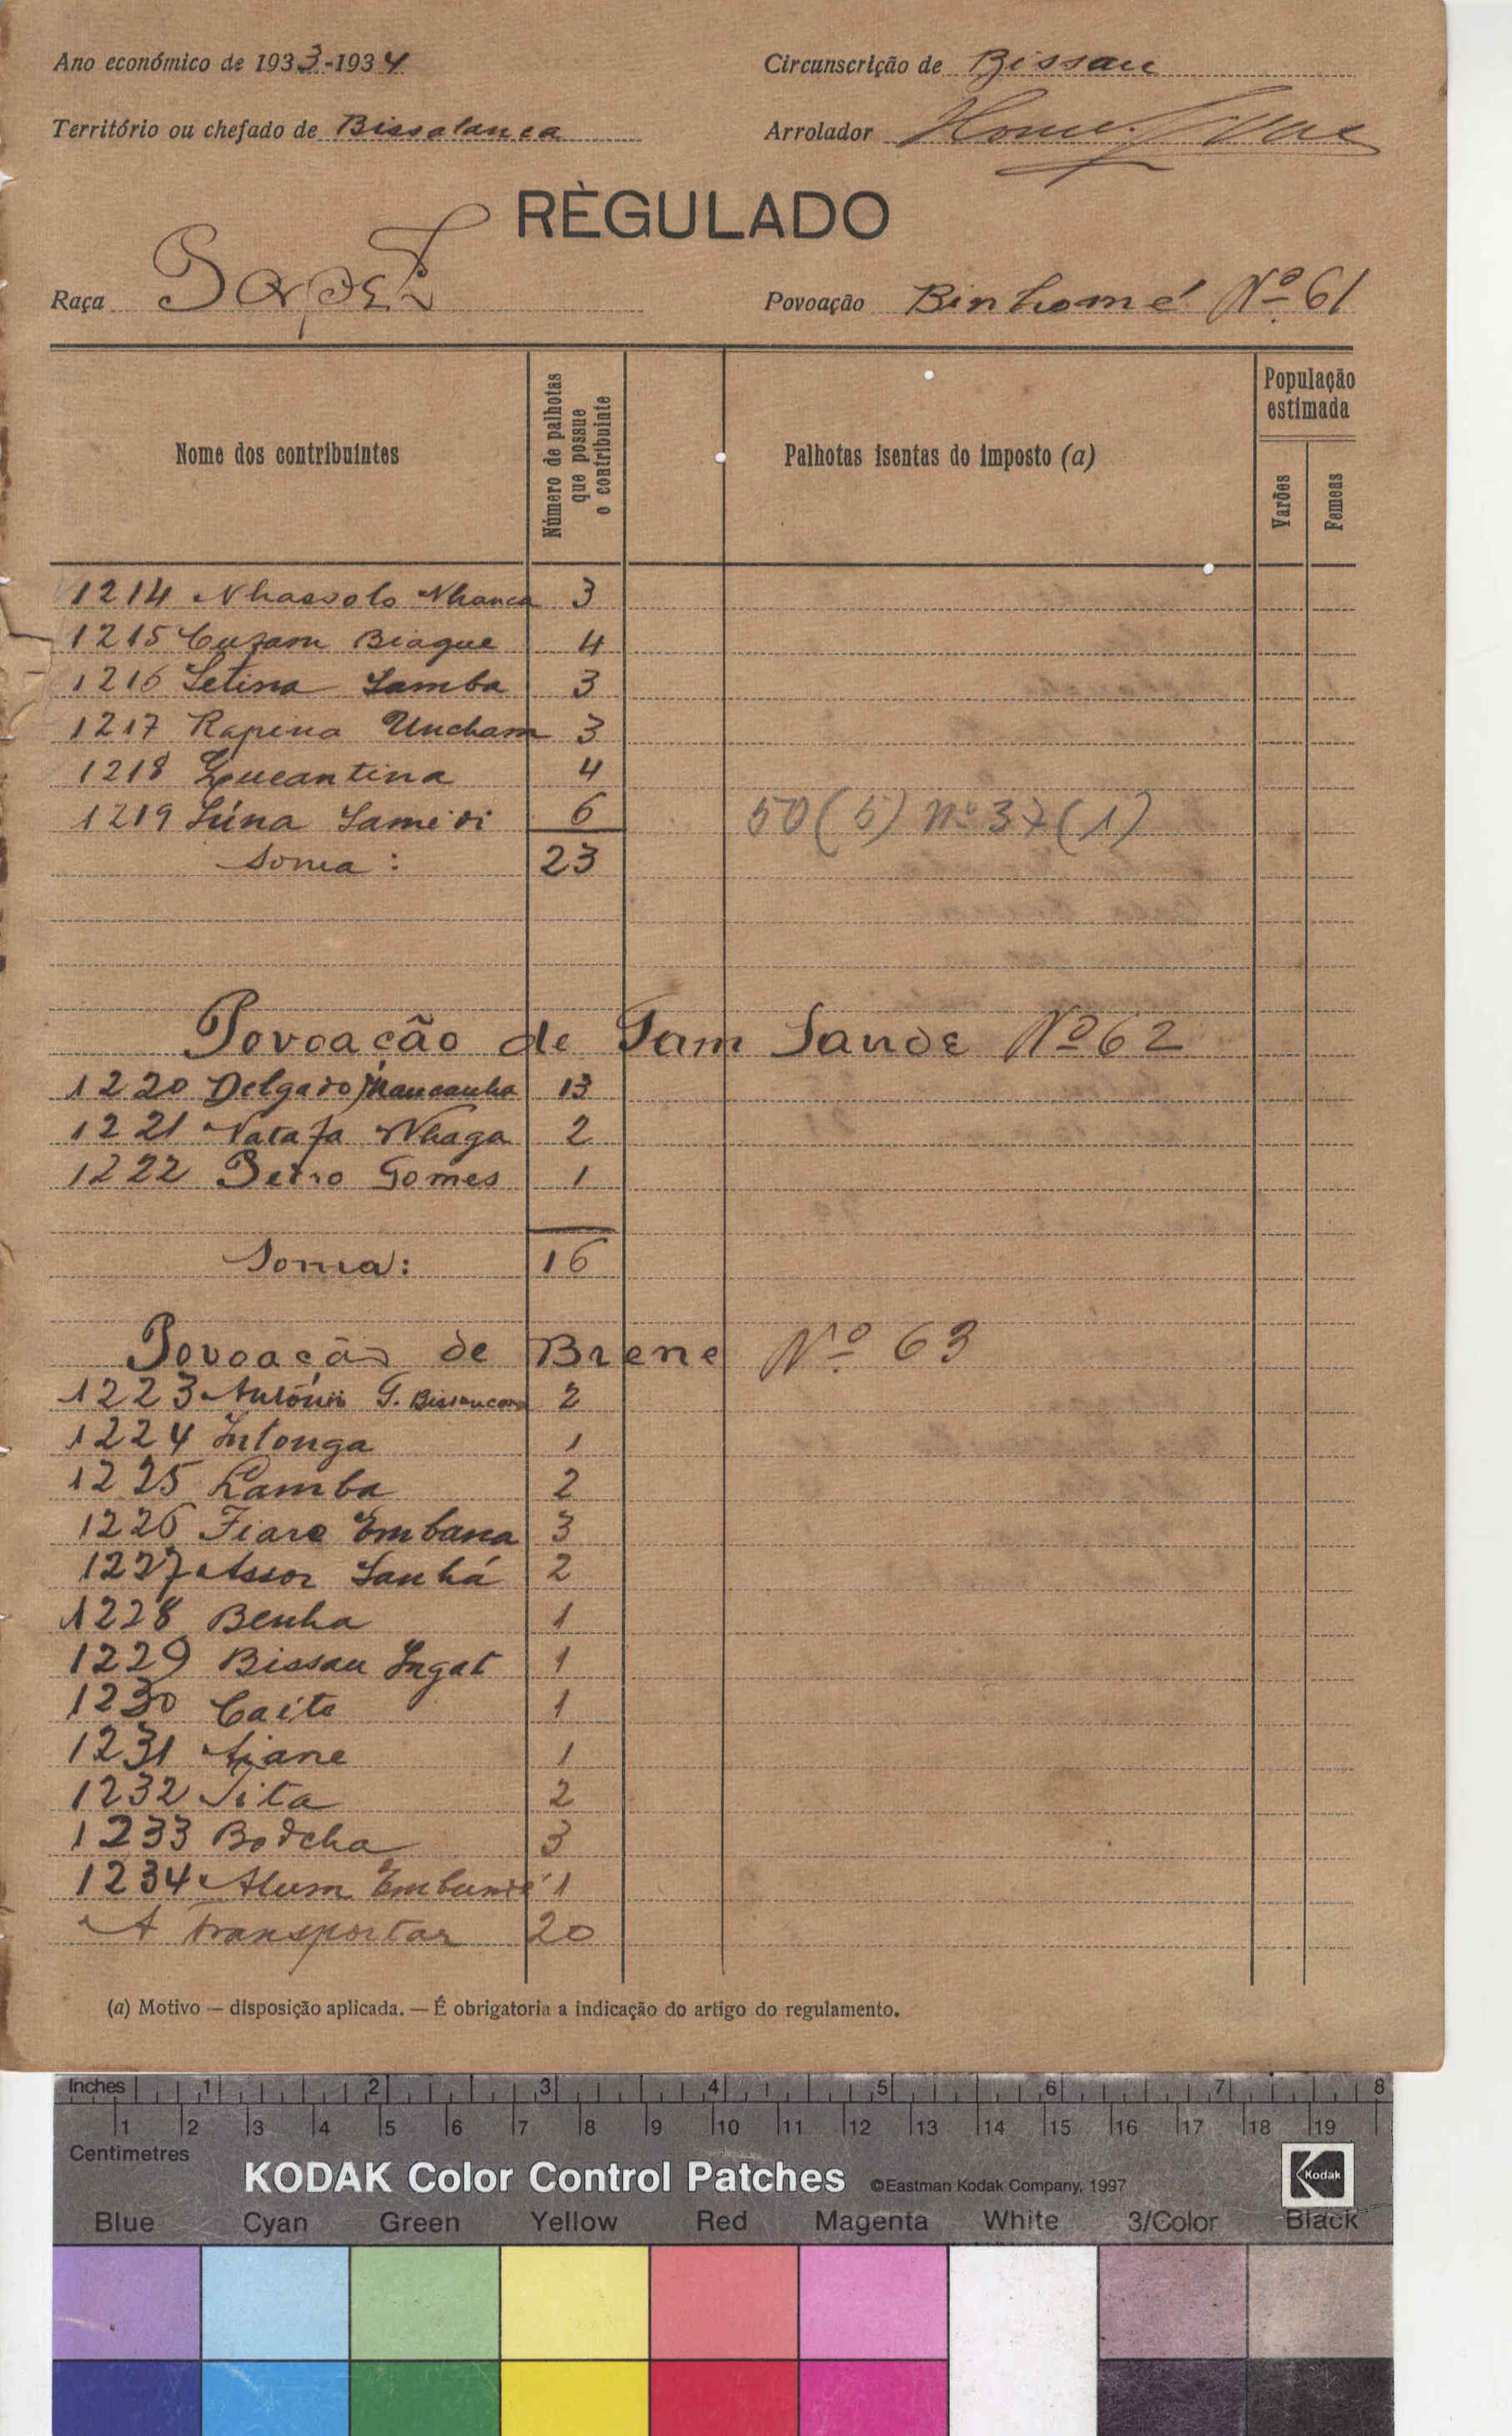 Ano económico de 1933-1934
Circunscrição de Bissau
Território ou chefado de Bissalanca
Arrolador
RÈGULADO
Raça Papel
Povoação Binhomé Nº 61
Nome dos contribuintes
Número de palhotas que possue o contribuinte
Palhotas isentas do imposto (a)
População estimada
Varões
Femeas
1214 Nhassolo Nhanca 3
1215 Cuzam Biague 4
1216 Setina Samba 3
1217 Rapina Uncham 3
1218 Lucantina 4
1219 Súna 6 50(5) nº 37(1)
Soma: 23
Povoação de Tam Sande Nº 62
1220 Delgado Mancanha 13
1221 Natafa Nhaga 2
1222 Pedro Gomes 1
Soma: 16
Povoação de Brene Nº 63
1223 António G. 2
1224 Intonga 1
1225 Lamba 2
1226 Fiare Embana 3
1227 Assor Sanhá 2
1228 Benha 1
1229 Bissau Ingat 1
1230 Caite 1
1231 Aiane 1
1232 Sita 2
1233 Bodcha 3
1234 Alum 1
A transportar 20
(a) Motivo — disposição aplicada. — É obrigatoria a indicação do artigo do regulamento.
Inches 1 2 3 4 5 6 7 8
1 2 3 4 5 6 7 8 9 10 11 12 13 14 15 16 17 18 19
Centimetres
KODAK Color Control Patches ©Eastman Kodak Company, 1997 Kodak
Blue Cyan Green Yellow Red Magenta White 3/Color Black